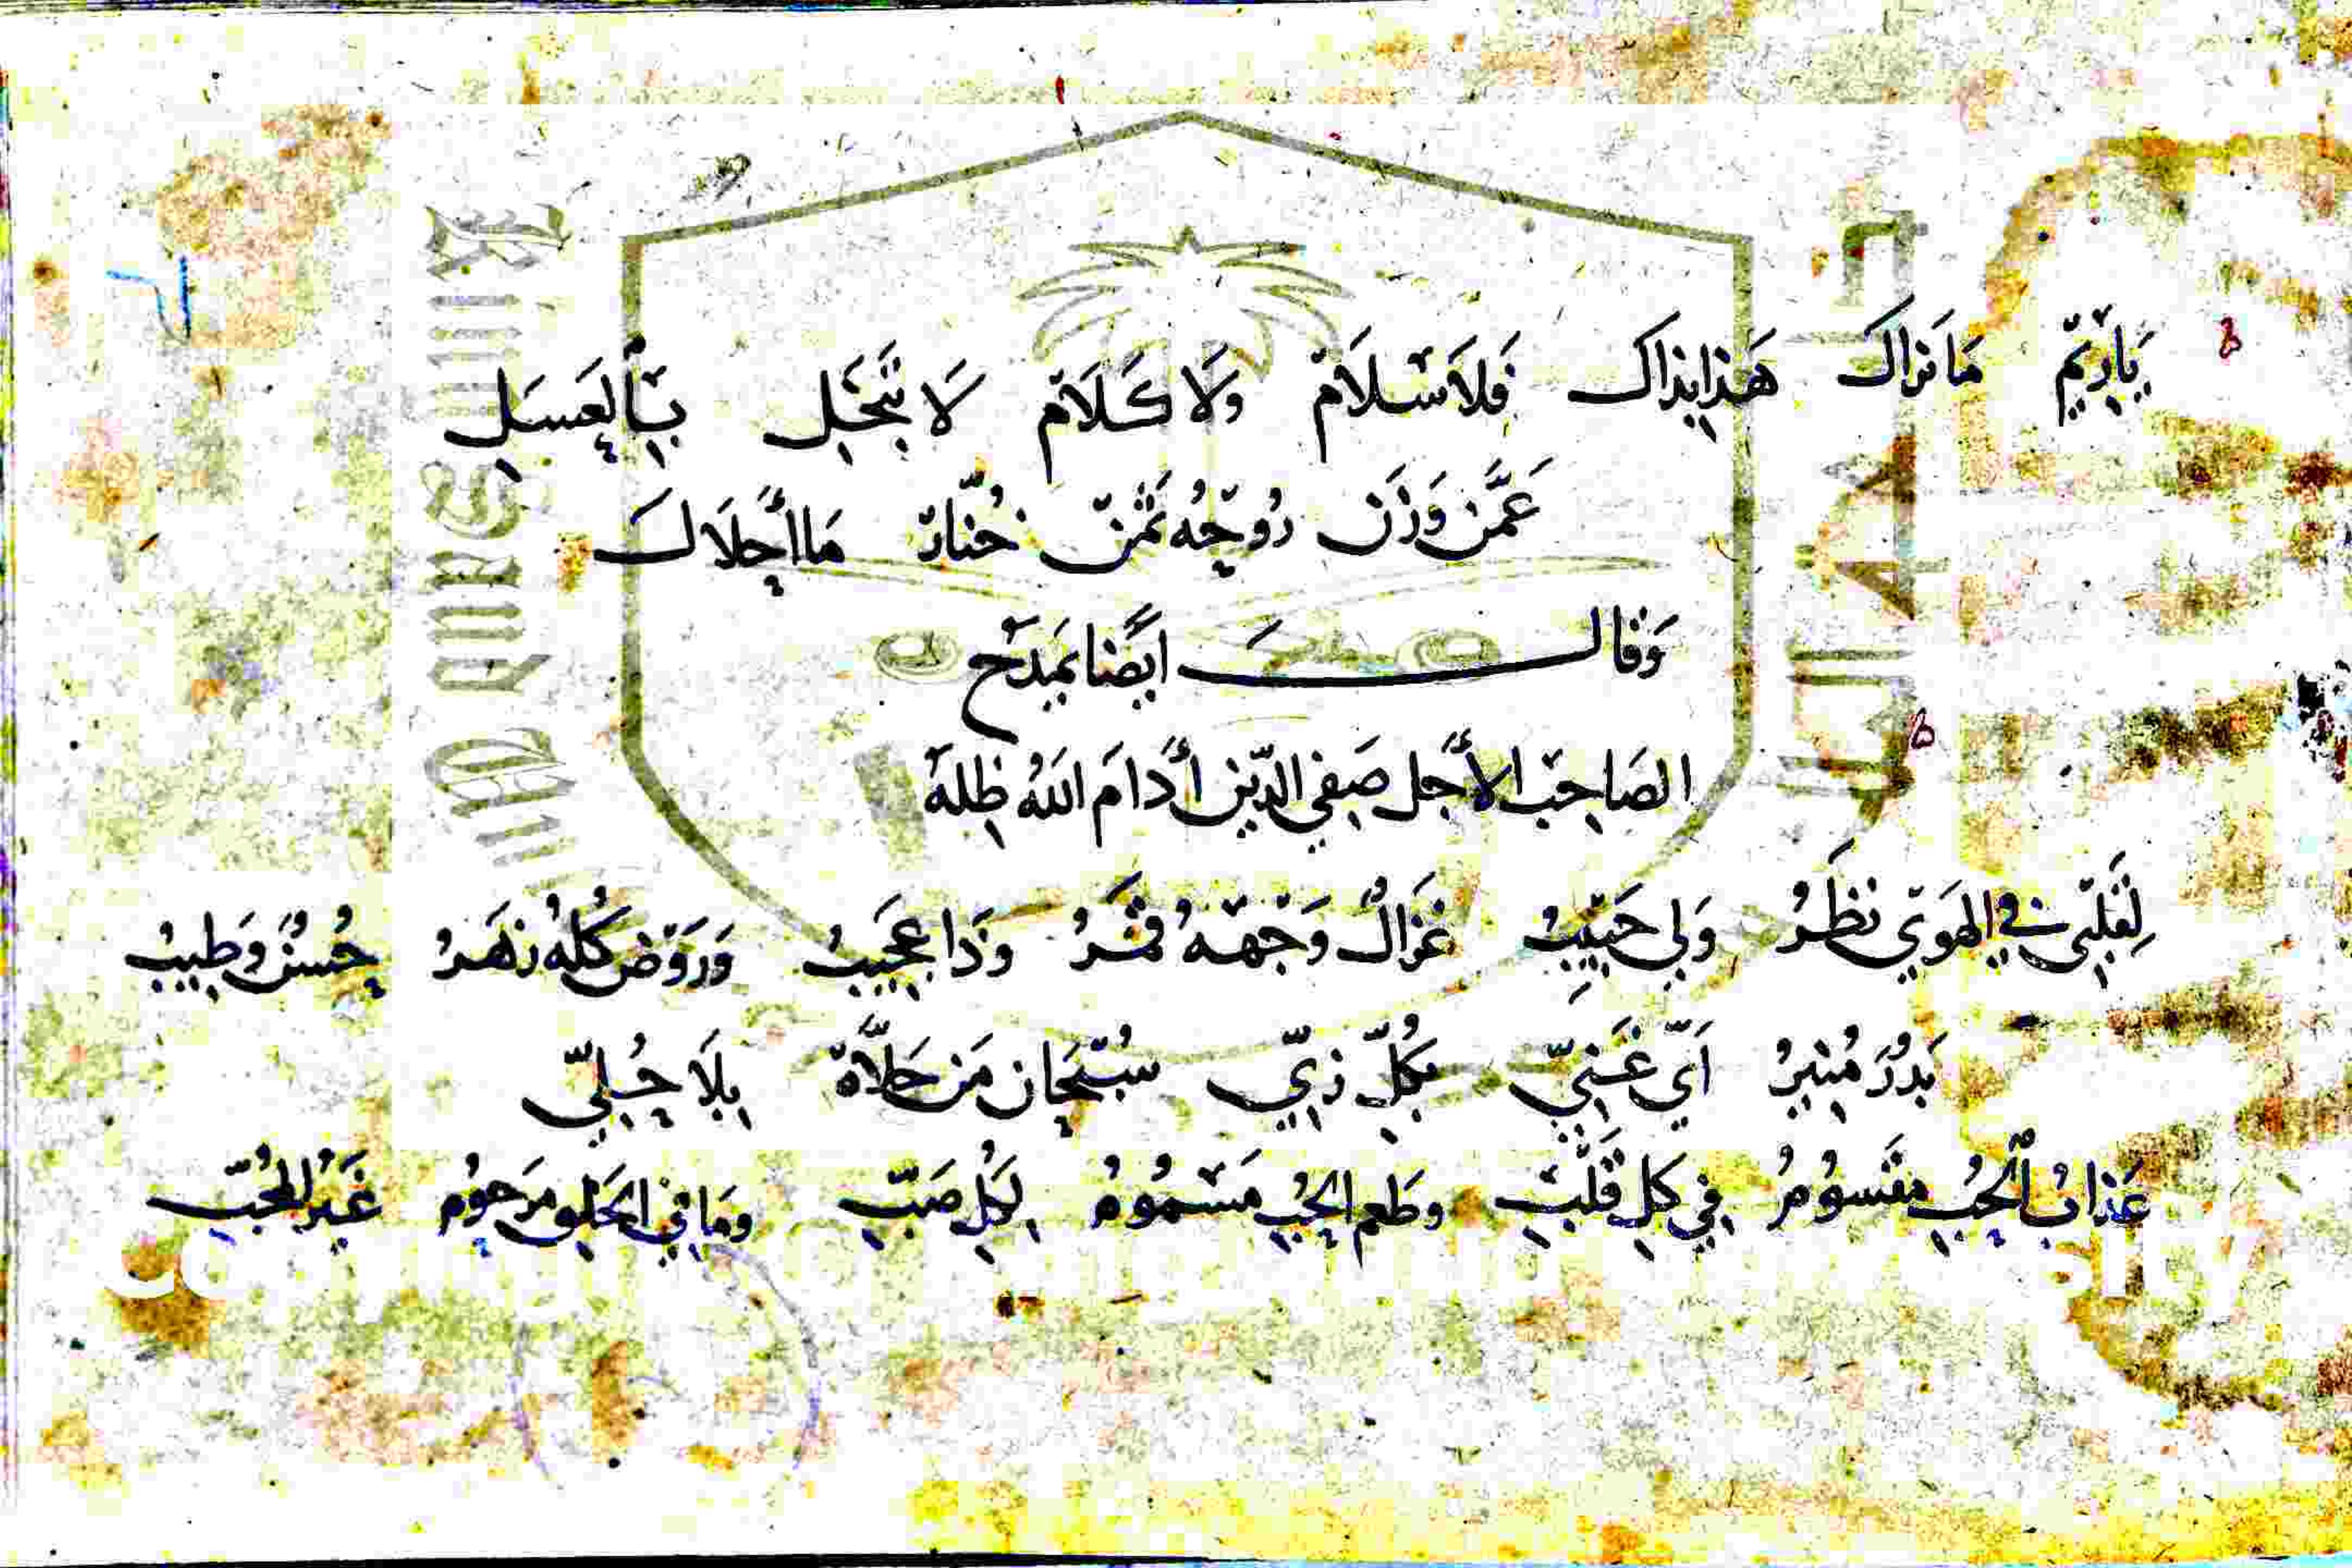 يَا رِيمْ مَا نَراك هَذا بِذاك فَلَا سْلَامْ وَلَا كَلَامْ لَا تَبْخَلِ بِالْعَسَلِ
عَمَّن وَزَن رُوحُه ثَمَنْ مَا أَحْلَاك
وَقالـــت ايضًا بمَدْح
الصَاحِبْ الأَجَل صَفي الدّين أَدَامَ اللهُ ظِلهُ
لِقَلْبي في الهَوَي نَظَرُ وَلِي حَبيبُ غَزالُ وَجْههُ قَمَرُ وَذَا عَجَيبُ وَرَوْض كُلهُ زَهَرُ حُسنُ وَطِيبُ
بَدْرُ مُنيرُ اَيّ غَنيّ بكُلّ زيّ سُبْحَان مَن حَلَّاهْ بِلَا حُليّ
عَذابُ الْحُبِ مقَسوُمُ فِي كلِ قَلْبِ وطَعم الحُبِ مَسْمُومُ لِكُلِ صَبّ ومَا فِي الخَلقِ مَرحوُم غَيرُ المُحُبّ